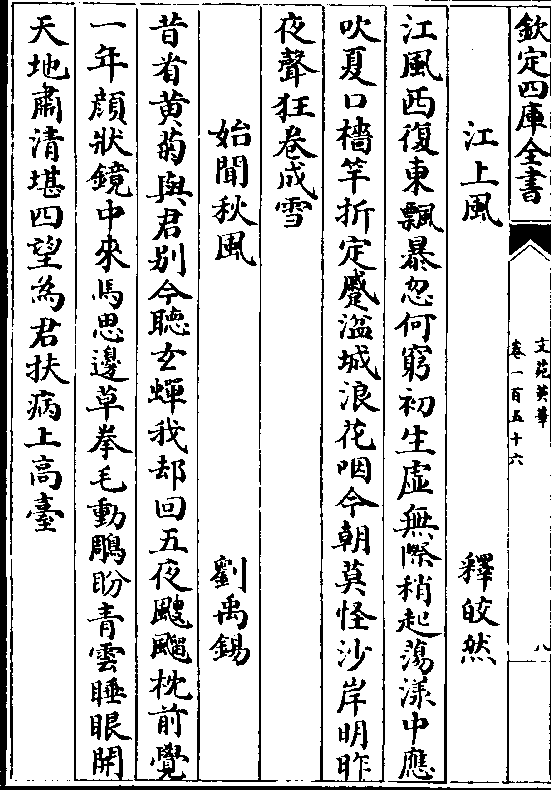 欽定四庫全書
文苑英華
卷一百五十六
八
江上風
釋皎然
江風西復東飄暴忽何窮初生虛無際稍起蕩漾中應
吹夏口檣竿折定蹙湓城浪花咽今朝莫怪沙岸明昨
夜聲狂卷成雪
始聞秋風
劉禹錫
昔看黄菊與君别今聽玄蟬我却回五夜颼飀枕前覺
一年顔狀鏡中來馬思邊草拳毛動鵰盼青雲睡眼開
天地肅清堪四望為君扶病上高臺